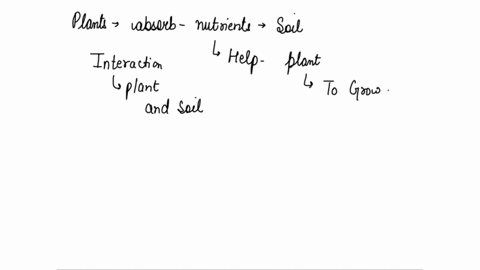 Plants → absorb - nutrients → Soil
↳ Help - plant
↳ To Grow.
Interaction
↳ plant
and soil